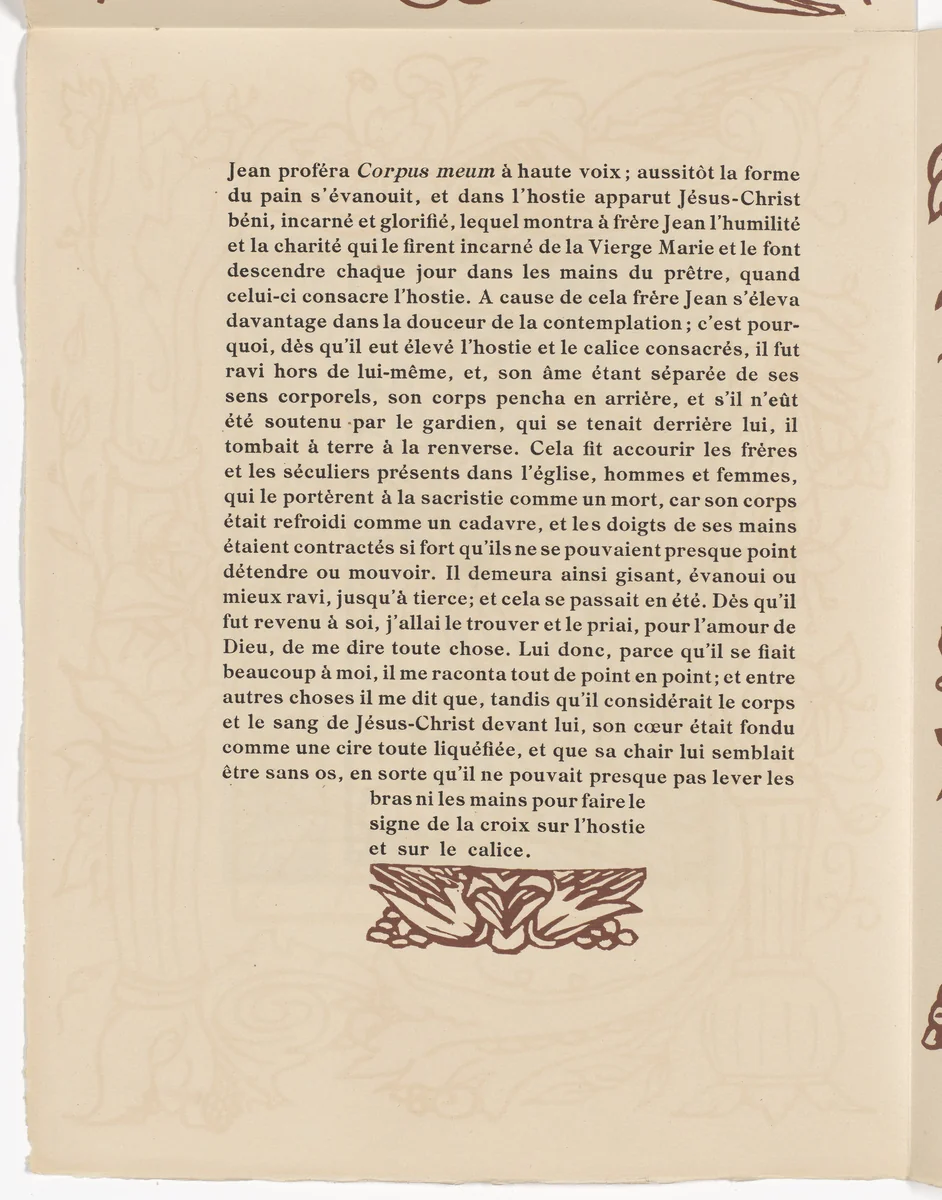 Jean proféra Corpus meum à haute voix ; aussitôt la forme
du pain s'évanouit, et dans l'hostie apparut Jésus-Christ
béni, incarné et glorifié, lequel montra à frère Jean l'humilité
et la charité qui le firent incarné de la Vierge Marie et le font
descendre chaque jour dans les mains du prêtre, quand
celui-ci consacre l'hostie. A cause de cela frère Jean s'éleva
davantage dans la douceur de la contemplation ; c'est pour-
quoi, dès qu'il eut élevé l'hostie et le calice consacrés, il fut
ravi hors de lui-même, et, son âme étant séparée de ses
sens corporels, son corps pencha en arrière, et s'il n'eût
été soutenu par le gardien, qui se tenait derrière lui, il
tombait à terre à la renverse. Cela fit accourir les frères
et les séculiers présents dans l'église, hommes et femmes,
qui le portèrent à la sacristie comme un mort, car son corps
était refroidi comme un cadavre, et les doigts de ses mains
étaient contractés si fort qu'ils ne se pouvaient presque point
détendre ou mouvoir. Il demeura ainsi gisant, évanoui ou
mieux ravi, jusqu'à tierce; et cela se passait en été. Dès qu'il
fut revenu à soi, j'allai le trouver et le priai, pour l'amour de
Dieu, de me dire toute chose. Lui donc, parce qu'il se fiait
beaucoup à moi, il me raconta tout de point en point ; et entre
autres choses il me dit que, tandis qu'il considérait le corps
et le sang de Jésus-Christ devant lui, son cœur était fondu
comme une cire toute liquéfiée, et que sa chair lui semblait
être sans os, en sorte qu'il ne pouvait presque pas lever les
bras ni les mains pour faire le
signe de la croix sur l'hostie
et sur le calice.